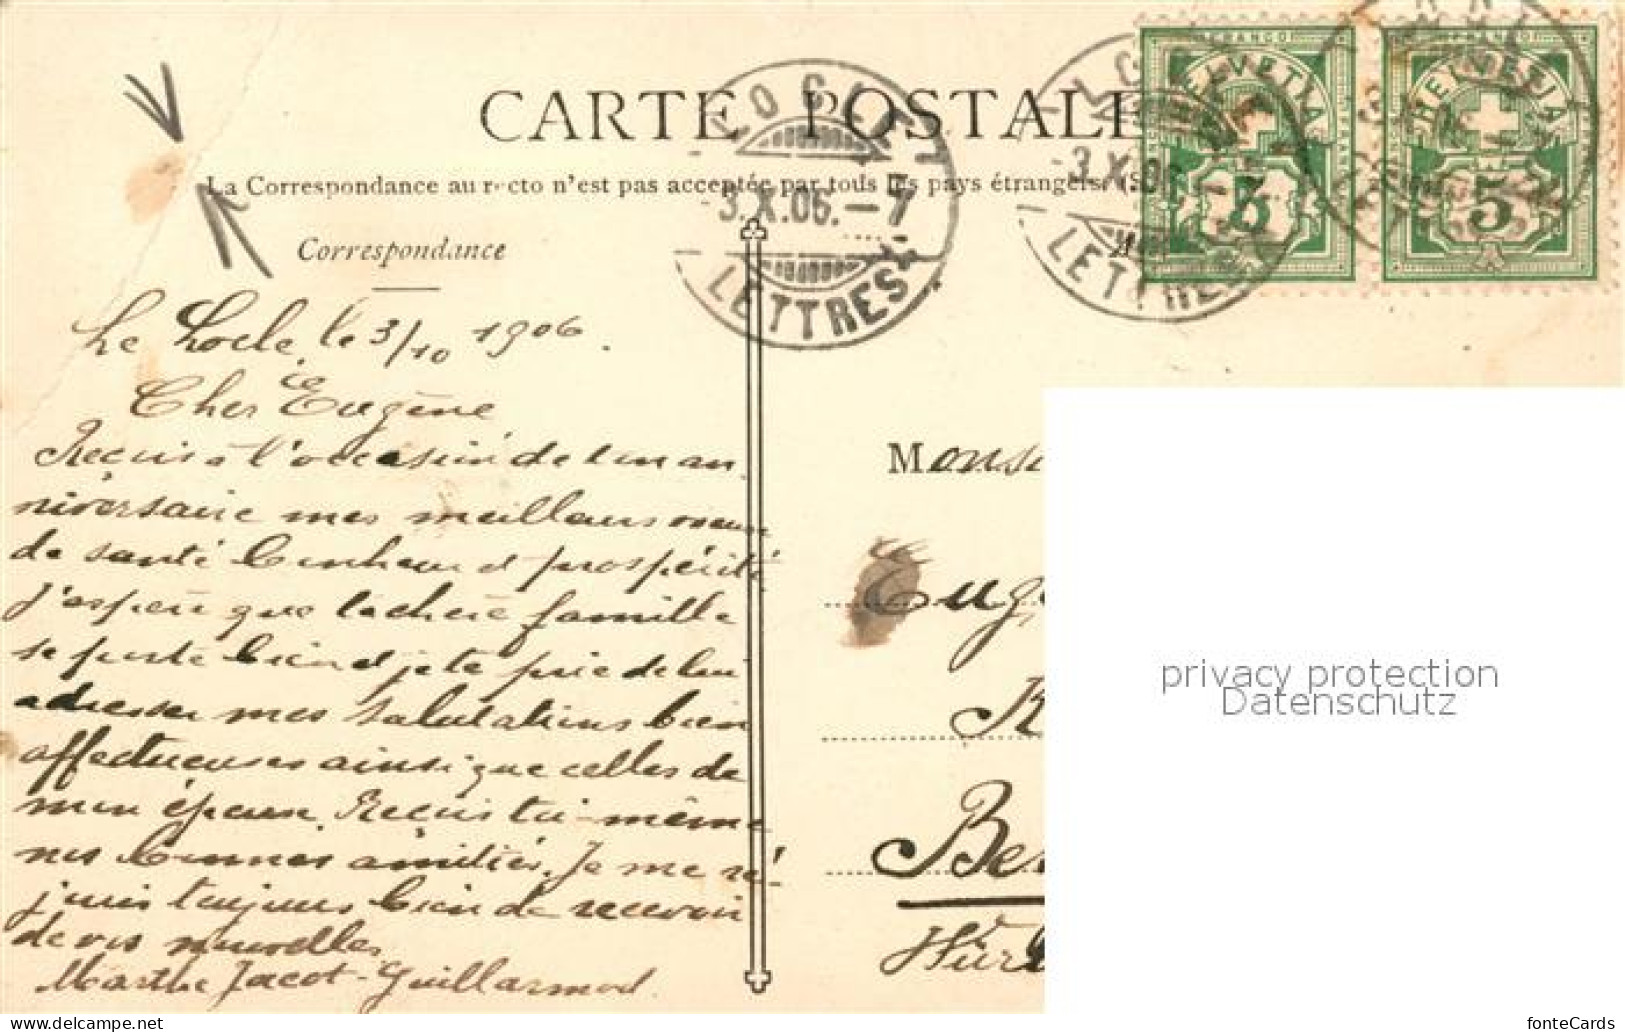 CARTE POSTALE
La Correspondance au recto n'est pas acceptée par tous les pays étrangers.
Correspondance
LOCLE
-3.X.06.-7
LETTRES
-3.X.06
LETTRES
FRANCO
HELVETIA
5
FRANCO
HELVETIA
5
Le Locle, le 3/10 1906.
Cher Eugène
Reçois à l'occasion de ton an
niversaire mes meilleurs voeux
de santé bonheur et prospérité
j'espère que ta chère famille
se porte bien et je te prie de lui
adresser mes salutations bien
affectueuses ainsi que celles de
mon époux. Reçois toi-même
nos bonnes amitiés. Je me ré-
jouis toujours bien de recevoir
de vos nouvelles
Marthe Jacot-Guillarmod.
Monsi
Eug
Be
privacy protection
Datenschutz
fonteCards